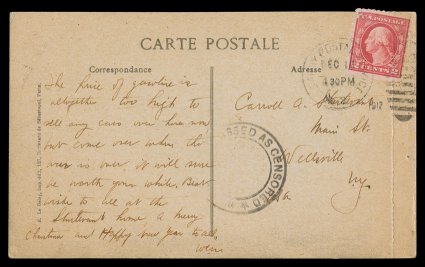 CARTE POSTALE
Correspondance
Adresse
The price of gasoline is
altogether too high to
sell any cars over here now
but come over when the
war is over it will sure
be worth your while. Best
wishes to all at the
Sturtevant home a Merry
Christmas and Happy new year to all.
Carroll A. Sturtevant
Main St.
Wellsville
N.Y.
U.S. POSTAGE
2 CENTS 2
DEC
430PM
1917
PASSED AS CENSORED